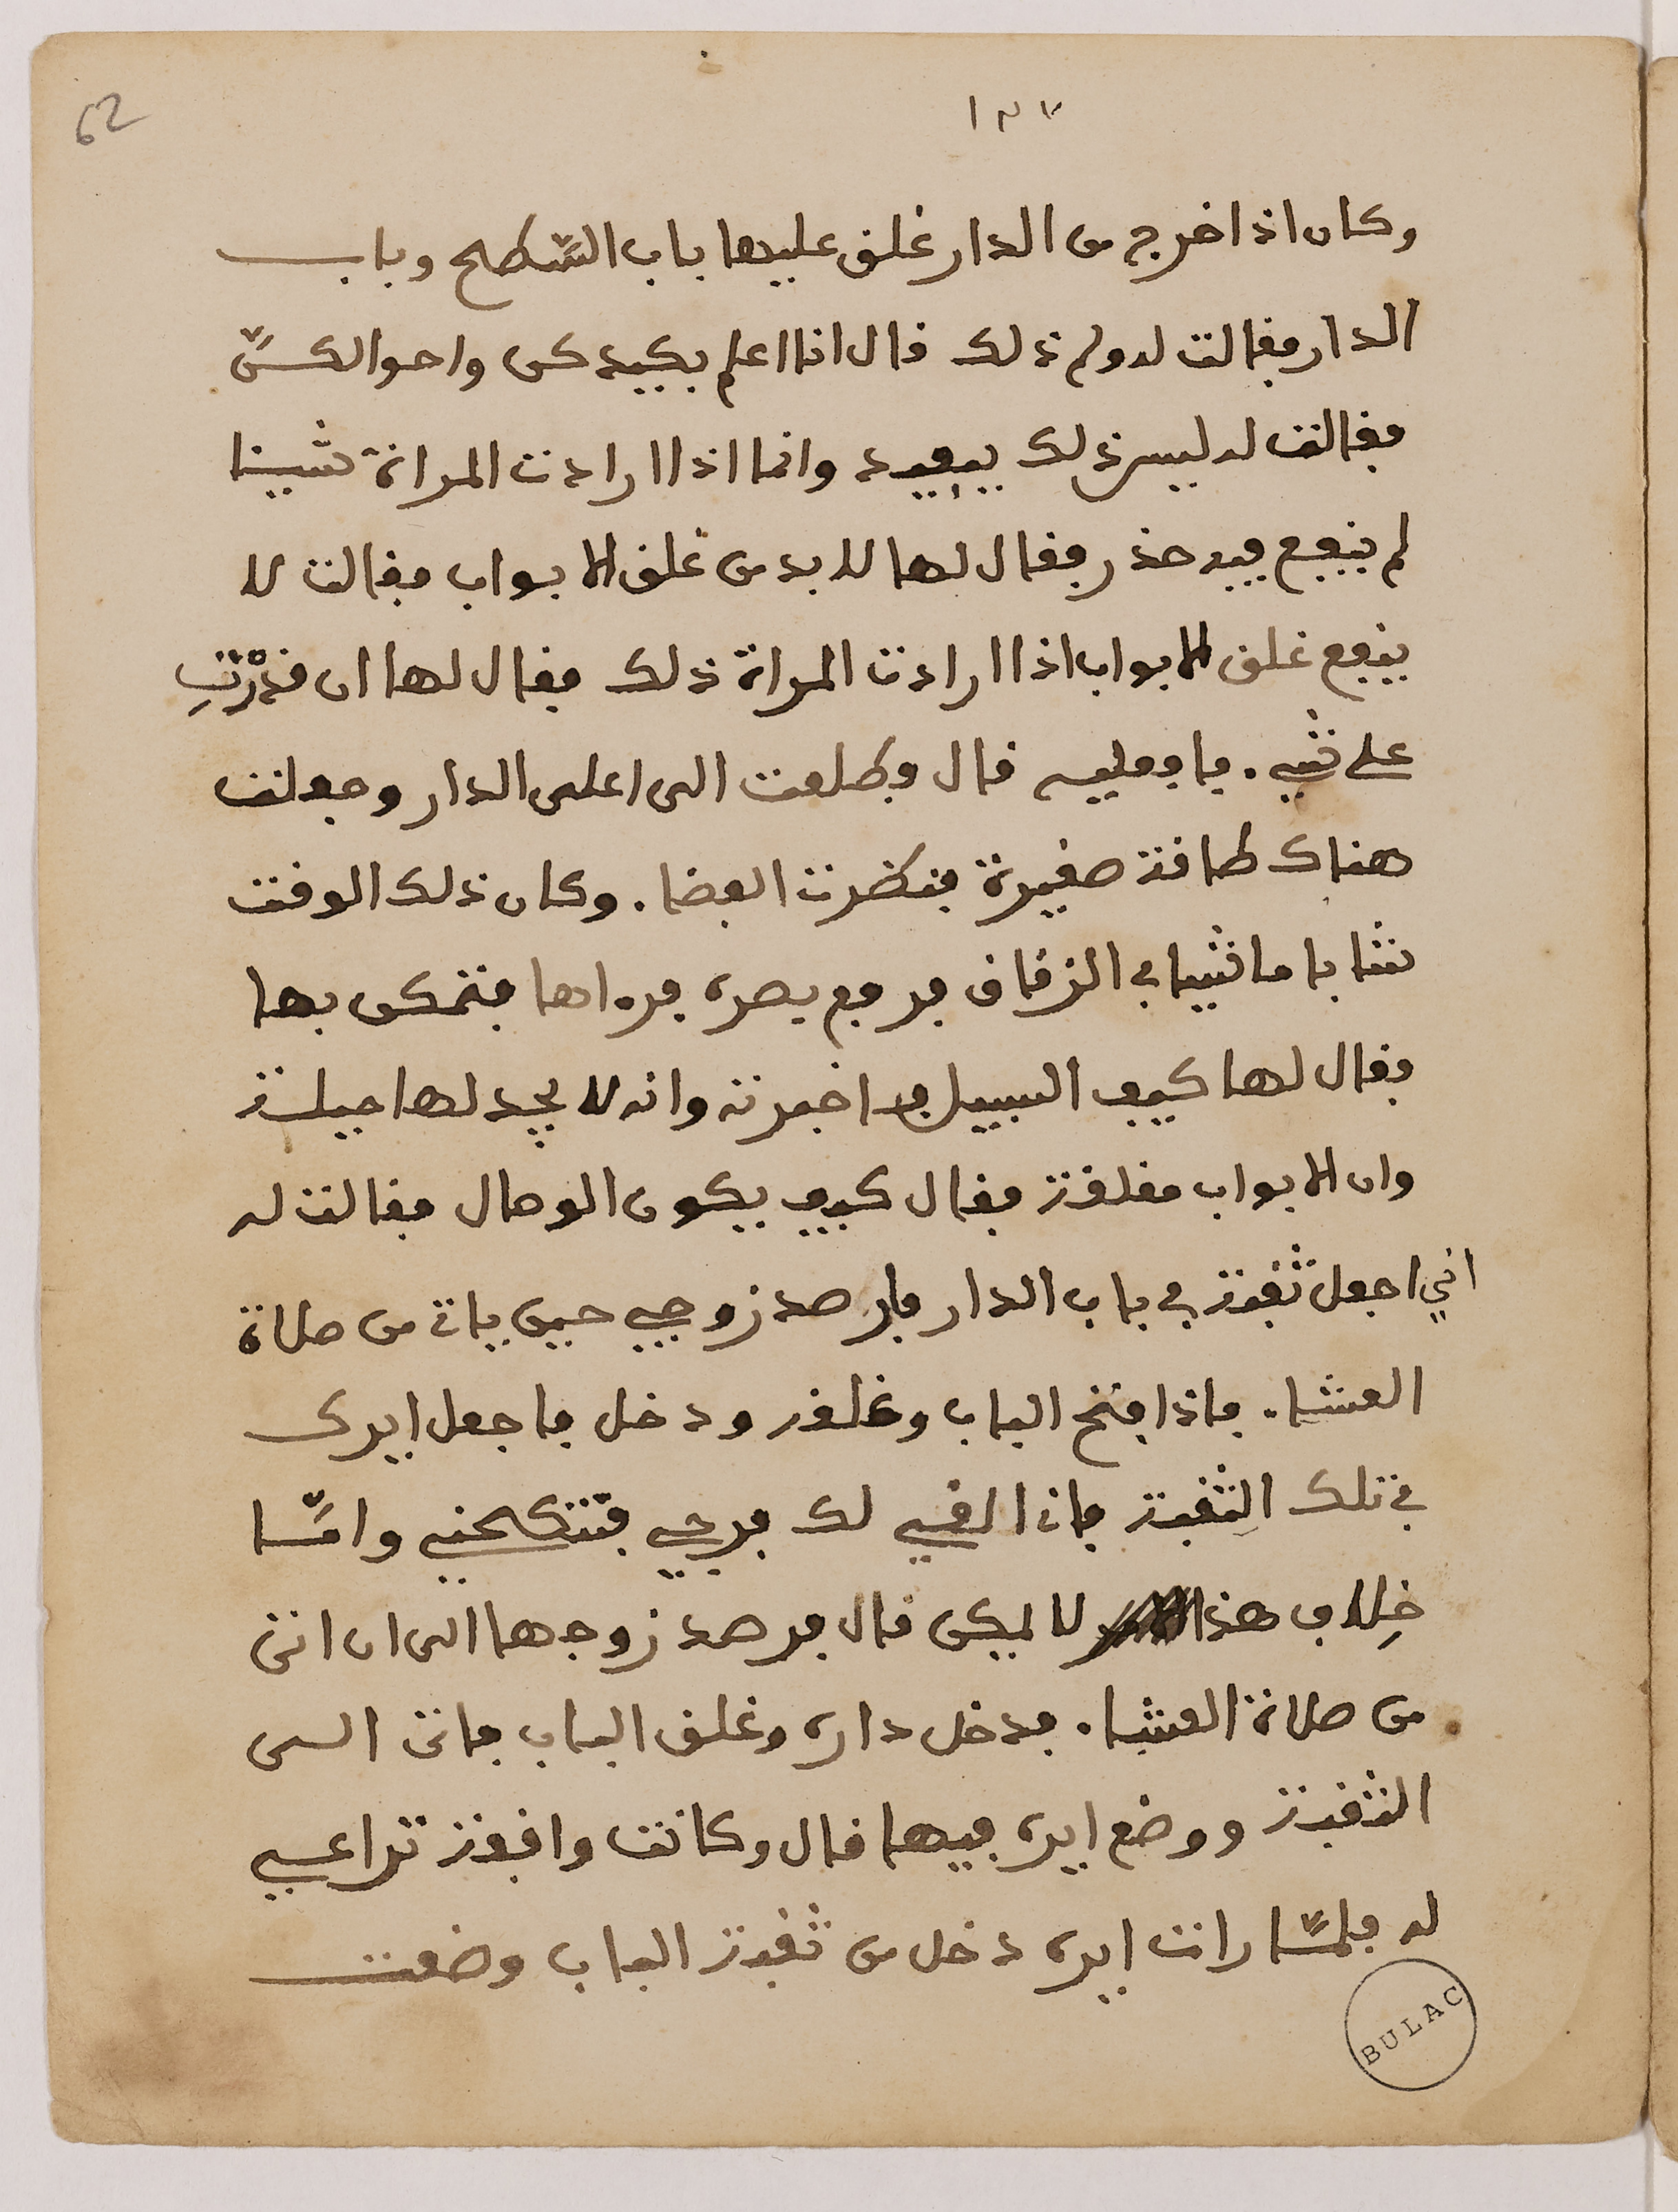 62
١٣٧
وكان اذا خرج من الدار غلق عليها باب السّطح وباب
الدار فقالت له ولم ذلك قال انا اعلم بكيدكن واحوالكنّ
فقالت له ليس ذلك بيفيد وانما اذا ارادت المراة شيئا
لم ينفع فيه حذر فقال لها لا بد من غلق الابواب فقالت لا
ينفع غلق الابواب اذا ارادت المراة ذلك فقال لها ان قدرْتِ
على شيء فافعليه قال فطلعت الى اعلى الدار وجعلت
هناك طاقة صغيرة فنظرت الفضاء وكان ذلك الوقت
شابا ماشيا في الزقاق فرفع بصره فرءاها فتمكن بها
فقال لها كيف السبيل فاخبرته وانه لا يجد لها حيلة
وان الابواب مغلقة فقال كيف يكون الوصال فقالت له
اني اجعل ثقبة في باب الدار فارصد زوجي حين يات من صلاة
العشاء فاذا فتح الباب وغلقه ودخل فاجعل ايرك
في تلك الثقبة فانا القي لك فرجي فتنكحني وامّا
خِلاف هذا لا يمكن قال فرصد زوجها الى ان اتى
من صلاة العشاء فدخل داره وغلق الباب فاتى الى
الثقبة ووضع ايره فيها قال وكانت واقفة تراعي
له فلمّا رات ايره دخل من ثقبة الباب وضعت
BULAC